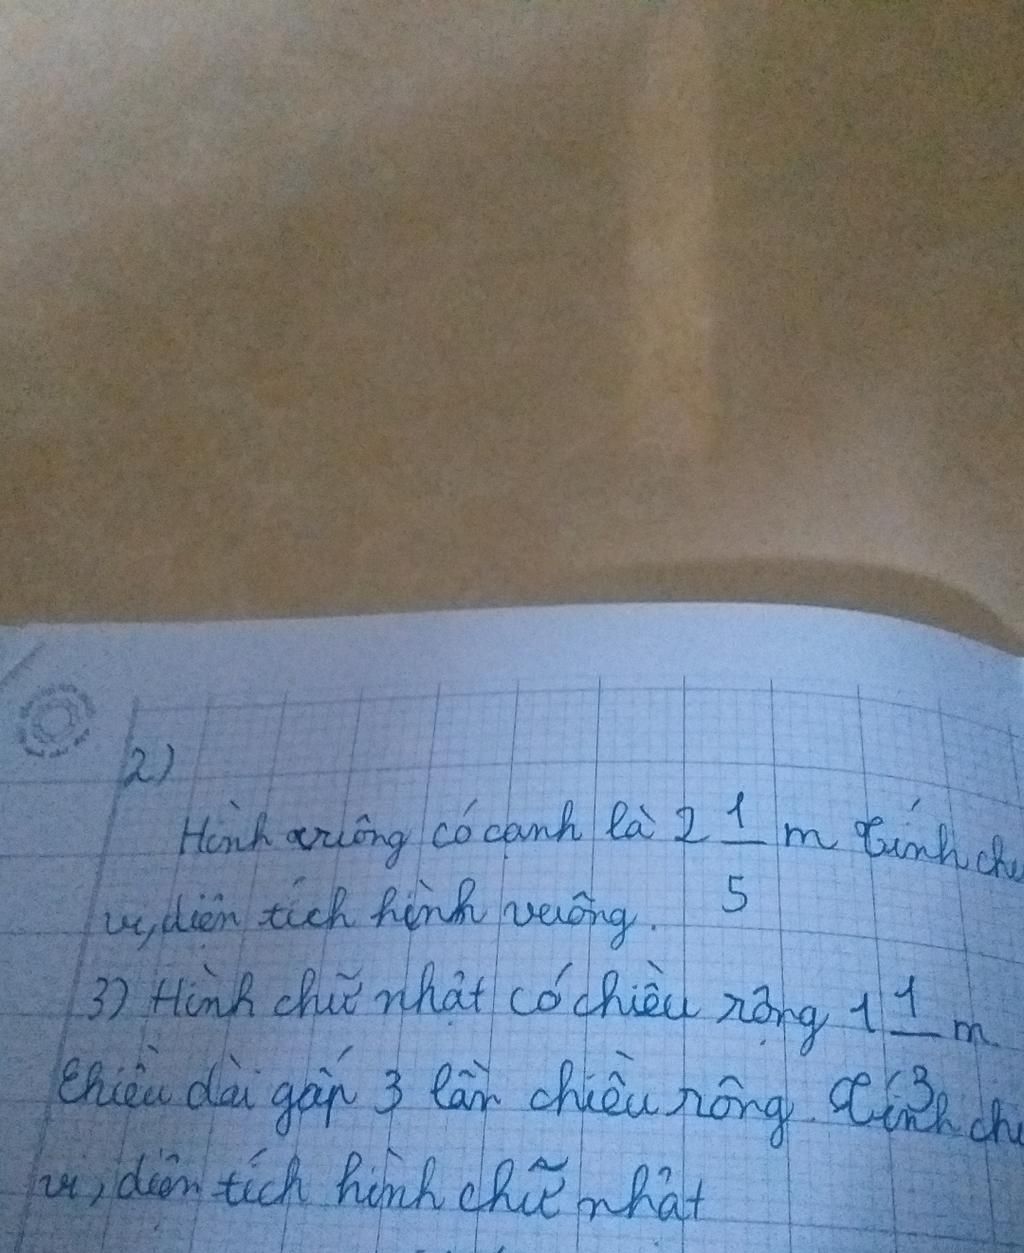 2)
Hình vuông có cạnh là 2 1/5 m Tính chu
vi, diện tích hình vuông.
3) Hình chữ nhật có chiều rộng 1 1/3 m
Chiều dài gấp 3 lần chiều rộng. Tính chu
vi, diện tích hình chữ nhật